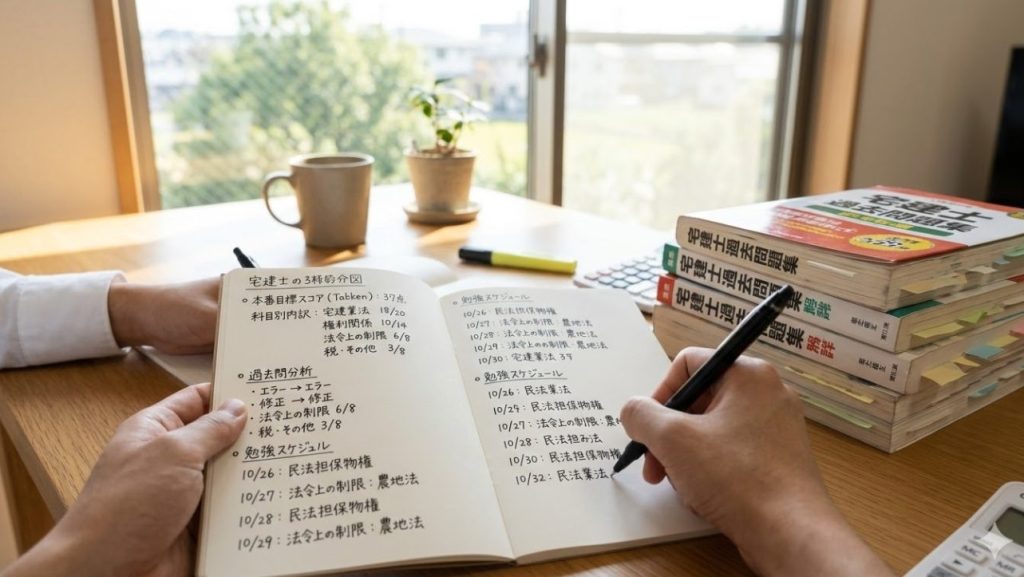 宅建士の3種的分図
本番目標スコア (Takken) : 37点
科目別内訳 : 宅建業法 18/20
権利関係 10/14
法令上の制限 6/8
税・その他 3/8
過去問分析
・エラー → エラー
・修正 → 修正
・法令上の制限 6/8
・税・その他 3/8
勉強スケジュール
10/26 : 民法担保物権
10/27 : 法令上の制限 : 農地法
10/28 : 民法担保物権
10/29 : 法令上の制限 : 農地法
勉強スケジュール
10/26 : 民法担保物権
10/27 : 法令上の制限 : 農地法
10/28 : 法令上の制限 : 農地法
10/29 : 法令上の制限 : 農地法
10/30 : 宅建業法
勉強スケジュール
10/26 : 民法業法
10/29 : 民法担保物権
10/27 : 法令上の制限 : 農
10/28 : 民法担み法
10/30 : 民法担保物権
10/32 : 民法業法
宅建士過去問題集
宅建士過去問題集
宅建士過去問題集